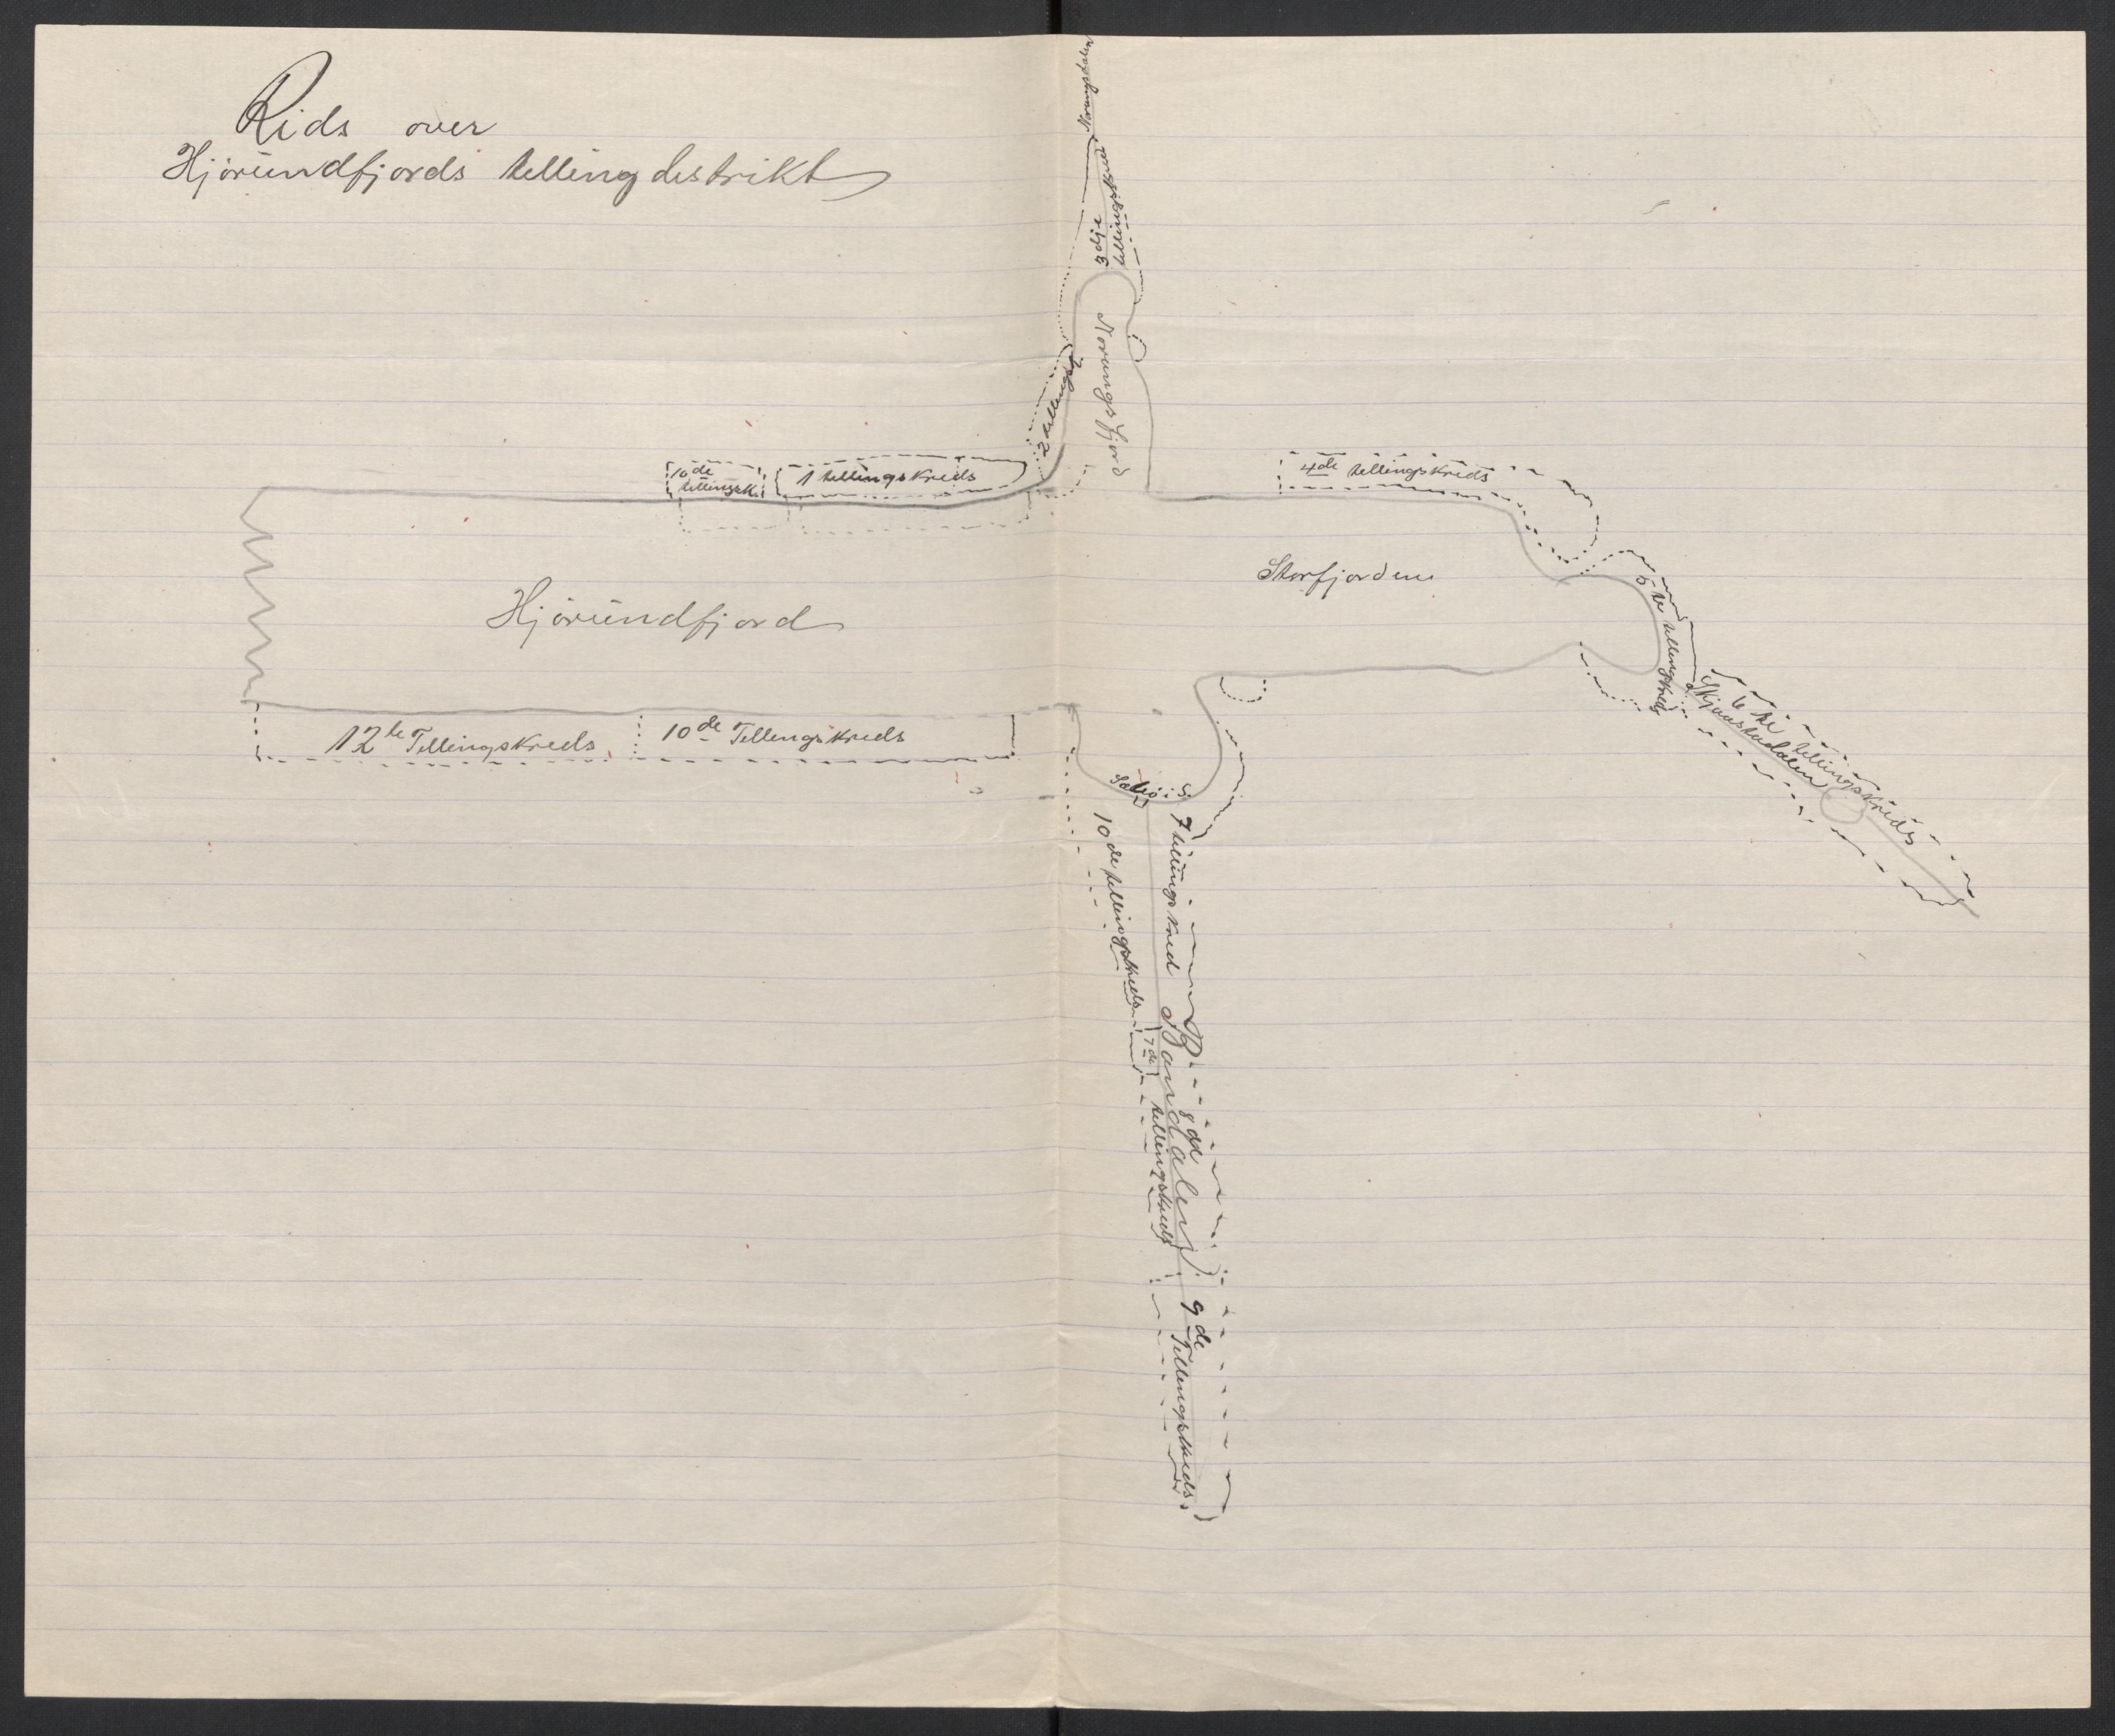 Rids over
Hjörundfjords tellingdistrikt
Norangsdalen
3dje
tellingskreds
Norangsfjord
2 tellingsk
10de
tellingsk.
1 tellingskreds
4de tellingskreds
Storfjorden
Hjörundfjord
5te tellingskreds
6te tellingskreds
Skjaastaddalen
12te Tellingskreds
10de Tellingskreds
Sæbö i S.
10de tellingskreds
7 tellingskred
Bondalen
7de
8de
tellingskreds
9de
Tellingskreds